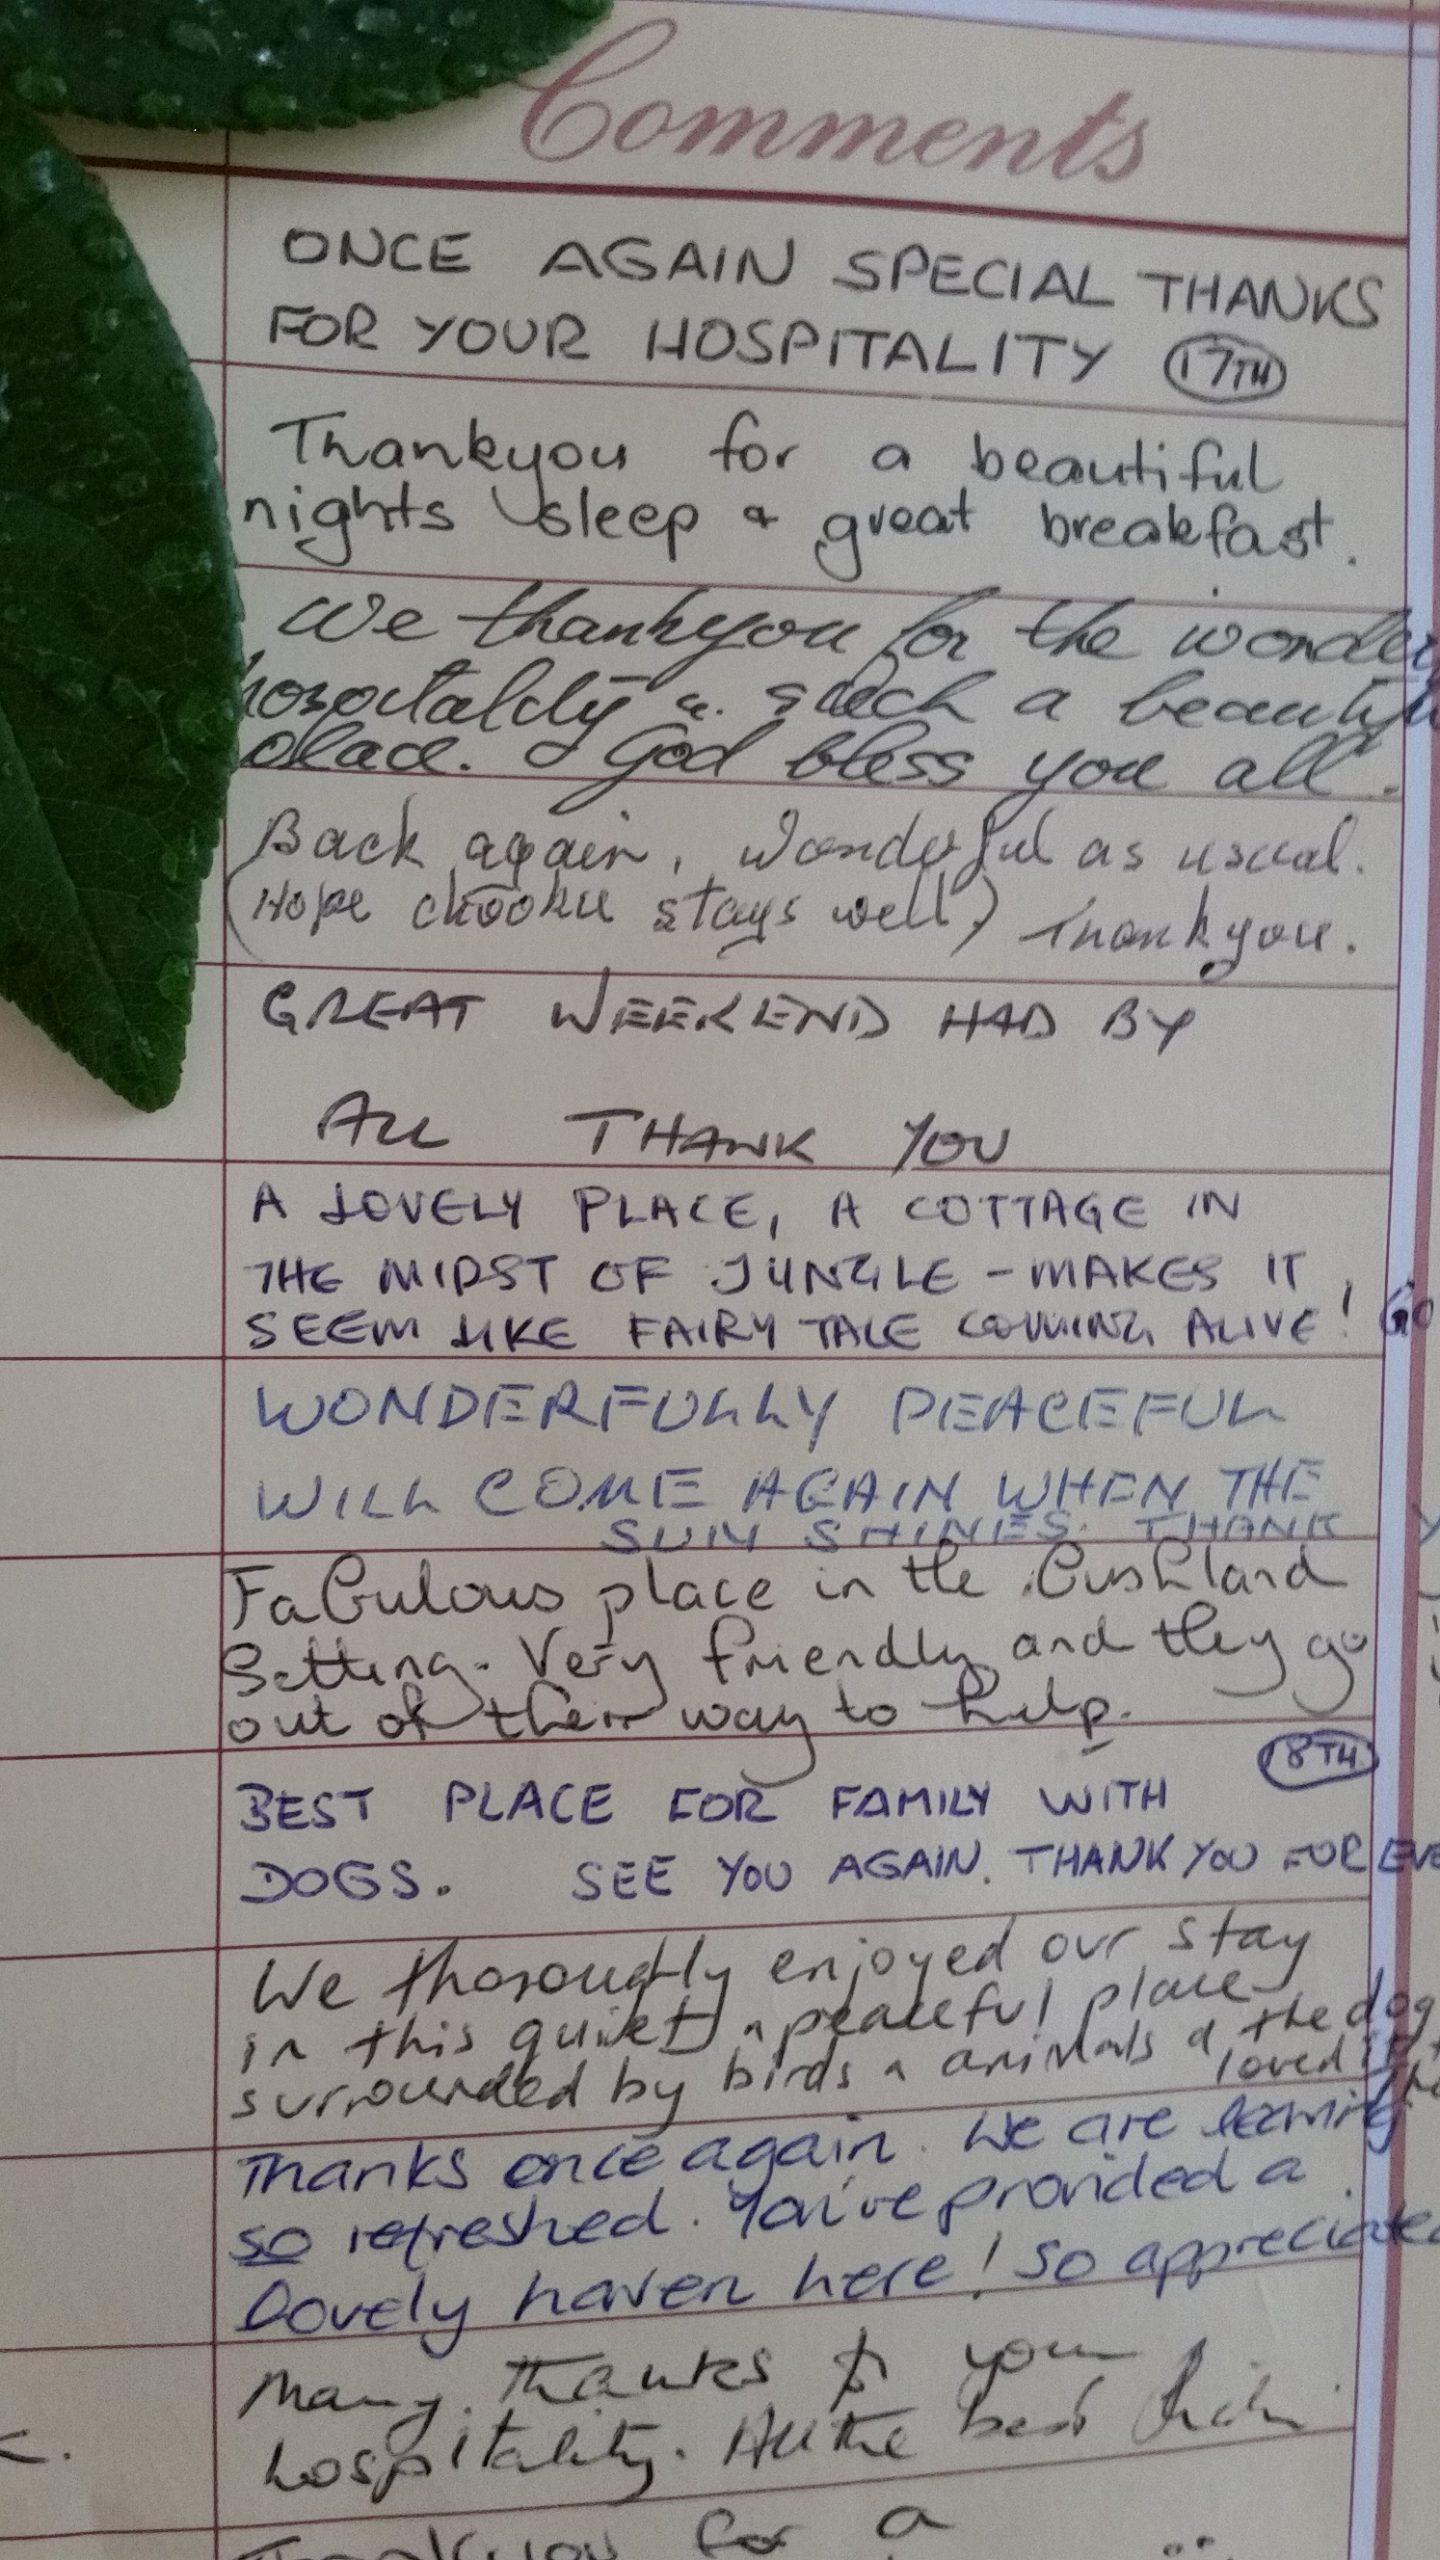 Comments
ONCE AGAIN SPECIAL THANKS
FOR YOUR HOSPITALITY 17TH
Thankyou for a beautiful
nights sleep & great breakfast.
We thankyou for the
hospitality & such a
place. God bless you all.
Back again, Wonderful as usual.
(Hope chookie stays well) Thankyou.
GREAT WEEKEND HAD BY
ALL THANK YOU
A LOVELY PLACE, A COTTAGE IN
THE MIDST OF JUNGLE - MAKES IT
SEEM LIKE FAIRY TALE COMING ALIVE!
WONDERFULLY PEACEFUL
WILL COME AGAIN WHEN THE
SUN SHINES. THANK
Fabulous place in the Bushland
Setting. Very friendly and they go
out of their way to help.
18TH
BEST PLACE FOR FAMILY WITH
DOGS. SEE YOU AGAIN. THANK YOU FOR
We thoroughly enjoyed our stay
in this quiet & peaceful place
surrounded by birds & animals & the dog
loved
Thanks once again. We are leaving
so refreshed. You've provided a
lovely haven here! So appreciated
Many thanks for your
hospitality. All the best
Thankyou for a